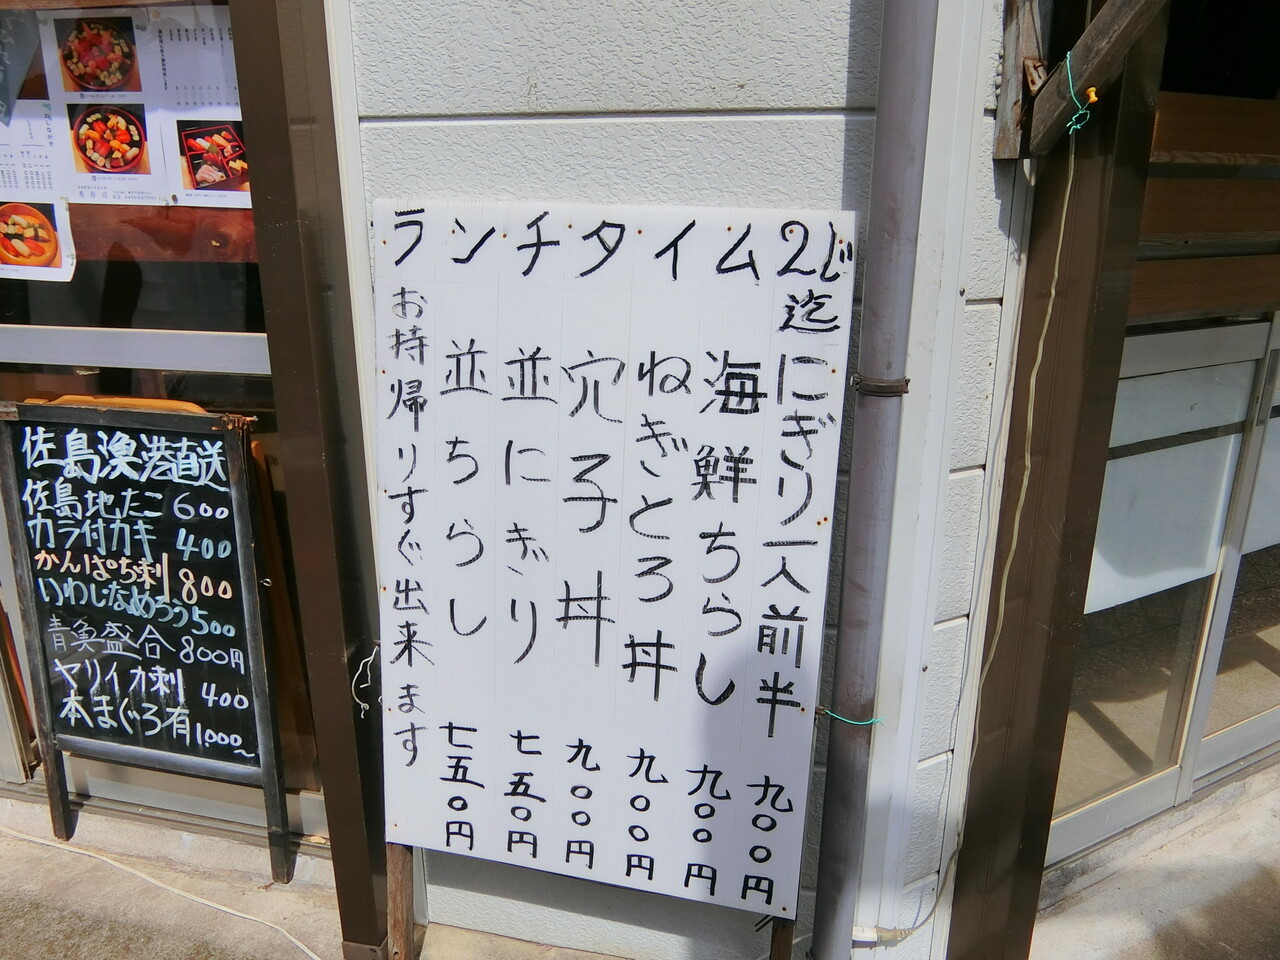 ランチタイム2じ迄
にぎり一人前半 九〇〇円
海鮮ちらし 九〇〇円
ねぎとろ丼 九〇〇円
穴子丼 九〇〇円
並にぎり 七五〇円
並ちらし 七五〇円
お持帰りすぐ出来ます
佐島漁港直送
佐島地たこ 600
カラ付カキ 400
かんぱち刺 800
いわしなめろう 500
青魚盛合 800円
ヤリイカ刺 400
本まぐろ有 1,000~
おしながき